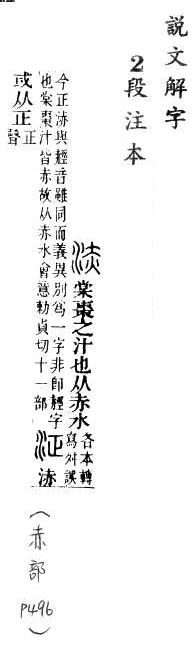 說文解字
2段注本
浾棠棗之汁也从赤水各本轉
寫舛誤
今正浾與經音雖同而義異別爲一字非即經字
也棠棗汁皆赤故从赤水會意勑貞切十一部
泟浾
或从正正
聲
(赤部 P496)